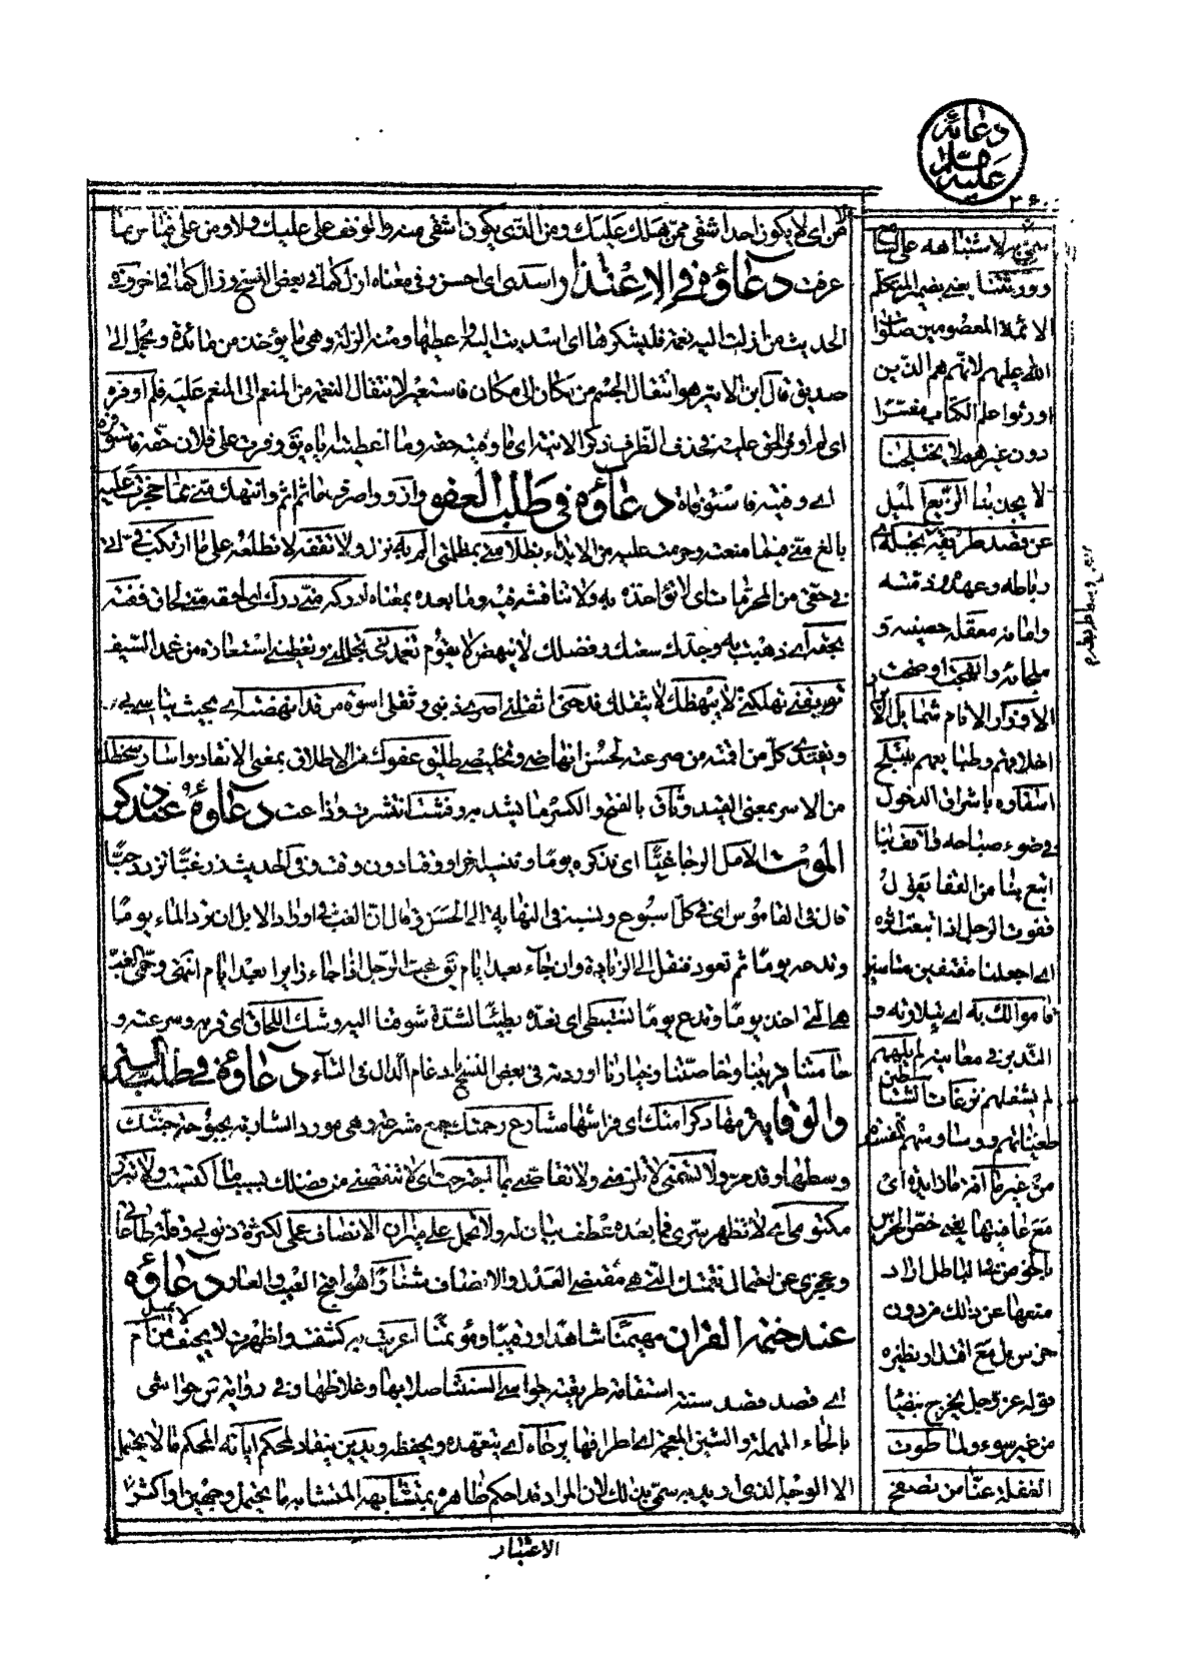 دعائه
عليه السلام
٢٦٠
من اى لا يكون احدا شقى ممن هلك عليك و من الذى يكون اشقى منه والوفد على عليك و لا و من على
عرفت دعاؤه فى الاعتذار واسدى اى احسن و فى معناه ازل كما فى بعض النسخ و زال كما فى اخر و فى
الحديث من ازلت اليه نعمة فليشكرها اى اسديت اليه و اعطيها و منه الزلة و هى ما يؤخذ من مائدة و يحمل الى
صديق قال ابن الاثير هو انتقال الجسم من مكان الى مكان فاستعير لانتقال النعمة من المنعم الى المنعم عليه فلم اوفره
اى لم اوفر الحق عليه فحذف الظرف وفيته حقه و ما اعطيته اياه يق وفرت على فلان حقه فاستوفره
اى وفيته فاستوفاه دعاؤه فى طلب العفو وازو واصرف مأثم اثم وانتهك منى مما حجرت عليه
بالغ منى فيما منعته و حرمته عليه من الايذاء بظلامتى بمظلمتى الم به نزل و لا تقفه لا تطلعه على ما ارتكب فى اى
فى حقى من المحرمات اى لا تؤاخذه به و لا تناقشه فيه و ما بعده بمعناه ادركه منى درك اى لحقه منى لحاق ففته
بحقه اى ذهبت به وجدك سعتك و فضلك لا ينهض لا يقوم تغمدنى تجللنى و تغطينى استعارة من غمد السيف
توبقنى تهلكنى لا يبهظك لا يثقلك فدحنى اثقلنى اصرى ذنبى و ثقلى اسوة من قد انهضته اى بحيث يتاسى بى
و يقتدى كل من اقمته من صرعته لحسن انهاضى و تخليصى طليق عفوك من الاطلاق بمعنى الانقاد و اسار سخطك
من الاسر بمعنى القيد وثاق بالفتح و الكسر ما يشد به و فشت انتشرت و ذاعت دعاؤه عند ذكر
الموت الامل الرجا غبا اى تذكره يوما و تنسيه اخر او وفى الحديث زر غبا تزدد حبا
قال فى القاموس اى فى كل اسبوع و نسبه فى النهايه الى الحسن قال ان الغب فى اوراد الابل ان ترد الماء يوما
و تدعه يوما ثم تعود فنقل الى الزيارة و ان جاء بعد ايام يق غب الرجل اذا جاء زايرا بعد ايام انتهى و حمى الغب
هى التى اخذ يوما و تدع يوما نستبطى اى نعده بطيئا لشدة شوقنا اليه وشك اللحاق اى قربه و سرعته و
حامتنا قريبنا و خاصتنا و خيارنا اورده فى بعض النسخ بادغام الدال فى التاء دعاؤه فى طلب الستر
والوقاية مهاد كرامتك اى فراشها مشارع رحمتك جمع مشرعة و هى مورد الشاربة بحبوحة جنتك
وسطها و قد مر و لا تسمنى لا تلزمنى و لا تقاصنى بما اجترحت اى لا تنقصنى من فضلك بسبب ما اكتسبت و لا تبرز
مكتومى اى لا تظهر سترى فما بعده عطف بيان له و لا تحمل على ميزان الانصاف عملى لكثرة ذنوبى و قلة طاعاتى
و عجزى عن احتمال نقمتك التى هى مقتضى العدل و الانصاف شنارا هو اقبح العيب و العار دعاؤه
عند ختم القران مهيمنا شاهدا و رقيبا و مؤتمنا اعربت به كشفت و اظهرت لا يحيف من لا يميل من ام
اى قصد قصد سنته استقامة طريقته جواسى السنتنا صلابها و غلاظها و فى رواية س حواشى
بالحاء المهملة و الشين المعجمة اى اطرافها يرعاه اى يتعهده و يحفظه و يدين ينقاد لمحكم اياته المحكم ما لا يحتمل
الا الوجه الذى اريد به سمى بذلك لان المراد قد احكم ظاهره بمتشابهه المتشابه ما يحتمل وجهين او اكثر
لاشتباهه على السامع
و ورثتنا يعنى بضمير المتكلم
الائمة المعصومين صلوات
الله عليهم لانهم هم الذين
اورثوا علم الكتاب مفسرا
دون غيرهم لا يختلجنا
لا يجذبنا الزيغ الميل
عن قصد طريقه بحبله اى
رباطه و عهده و ذمته
و امانه معقله حصينه و
ملجائه و الهجت اوضحت
الاوزار الاثام شمايل
اخلاقهم و طبايعهم بتبلج
اسفاره باشراق الدخول
فى ضوء صباحه واقف بنا
اتبع بنا من القفا يقال
قفوت الرجل اذا تبعت اثره
اى اجعلنا مقتفين متاسين
قاموا لك به اى بتلاوته و
التدبر فى معانيه لم يلههم
لم يشغلهم نزغات الشياطين
طعناتهم و وساوسهم المفسدة
من غير ما افة ما زايدة اى
مع عافيتها يعنى خص الخرس
بالخوض فى الباطل اراد
منعها عن ذلك من دون
خرس بل مع اقتدار و نظيره
قوله عز و جل تخرج بيضاء
من غير سوء و لما طوت
الغفلة عنا من تصفح
الاعتبار